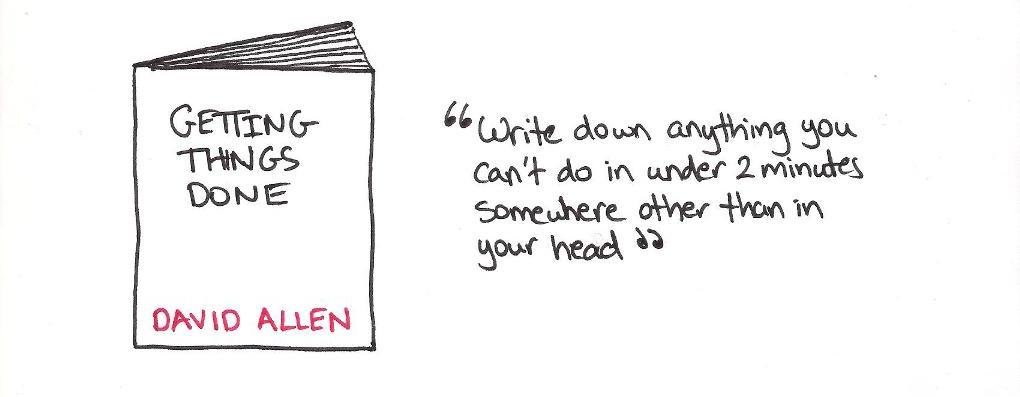 GETTING
THINGS
DONE
DAVID ALLEN
“Write down anything you
can't do in under 2 minutes
somewhere other than in
your head”